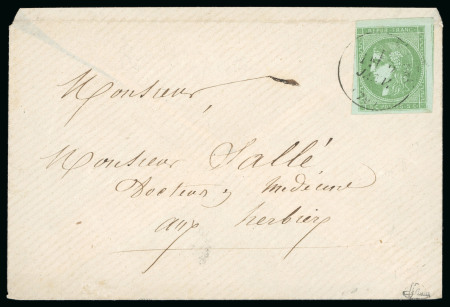 REPUB. FRANC.
Monsieur,
Monsieur Sallé
Docteur en médecine
aux herbiers